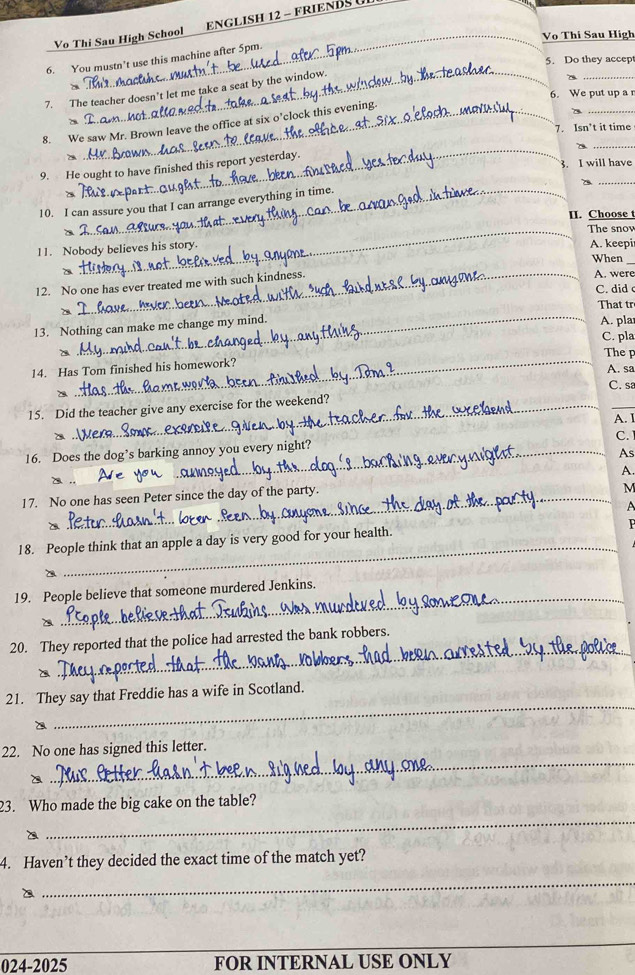 Vo Thi Sau High School ENGLISH 12 - FRIENDS
6. You mustn't use this machine after 5pm.
This machine mustn't be used after 5pm
7. The teacher doesn't let me take a seat by the window.
I am not allowed to take a seat by the window by the teacher.
8. We saw Mr. Brown leave the office at six o'clock this evening.
Mr. Brown has seen to leave the office at six o'clock
9. He ought to have finished this report yesterday.
This report ought to have been finished yesterday
10. I can assure you that I can arrange everything in time.
I can assure you that everything can be arranged in time.
11. Nobody believes his story.
History is not believed by anyone
12. No one has ever treated me with such kindness.
I have never been treated with such kindness by anyone.
13. Nothing can make me change my mind.
My mind can't be changed by anything
14. Has Tom finished his homework?
Has the homework been finished by Tom?
15. Did the teacher give any exercise for the weekend?
Were some exercise given by the teacher for the weekend
16. Does the dog's barking annoy you every night?
Are you annoyed by the dog's barking every night.
17. No one has seen Peter since the day of the party.
Peter hasn't been seen by anyone since the day of the party
18. People think that an apple a day is very good for your health.
19. People believe that someone murdered Jenkins.
People believe that Jenkins was murdered by someone.
20. They reported that the police had arrested the bank robbers.
They reported that the bank robbers had been arrested by the police
21. They say that Freddie has a wife in Scotland.
22. No one has signed this letter.
This letter hasn't been signed by any one.
23. Who made the big cake on the table?
4. Haven't they decided the exact time of the match yet?
024-2025 FOR INTERNAL USE ONLY
Vo Thi Sau High
5. Do they accept
6. We put up a
7. Isn't it time
I will have
II. Choose
The snow
A. keepi
When
A. were
C. did
That tr
A. pla
C. pla
The p
A. sa
C. sa
A. I
C.
As
A.
M
A
P